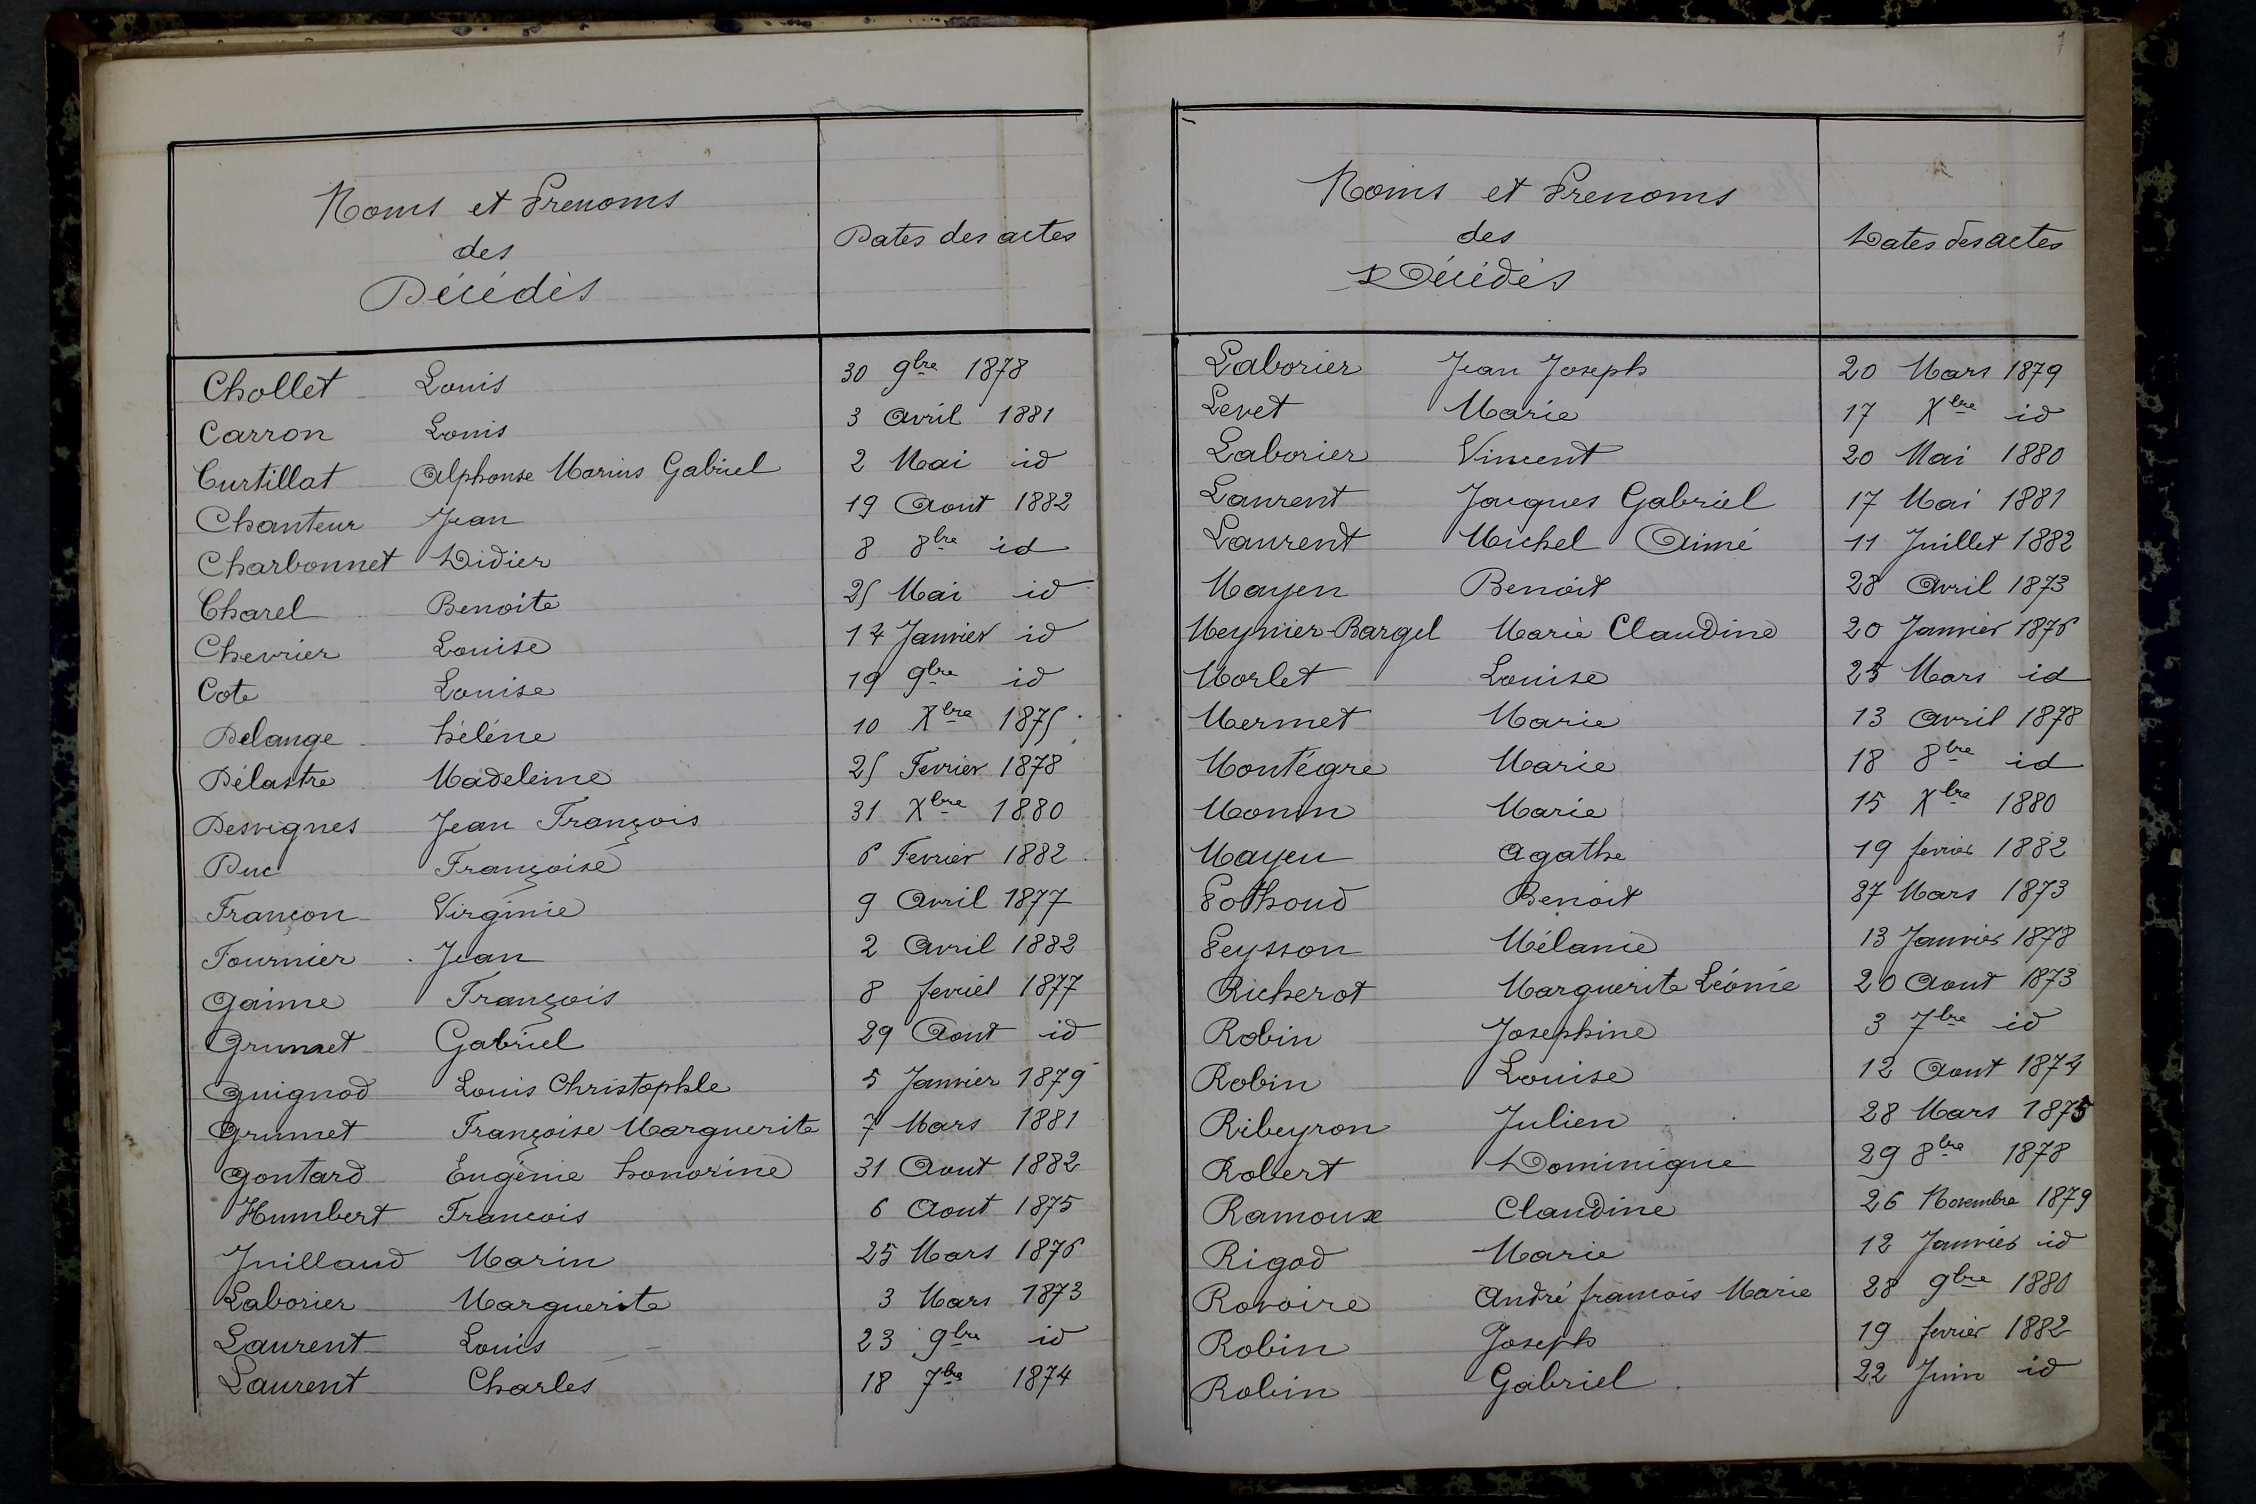 Noms et Prenoms
des
Décédés
Dates des actes
Chollet Louis 30 9bre 1878
Carron Louis 3 Avril 1881
Curtillat Alphonse Marius Gabriel 2 Mai id
Chanteur Jean 19 Aout 1882
Charbonnet Didier 8 8bre id
Charel Benoite 25 Mai id
Chevrier Louise 14 Janvier id
Cote Louise 19 9bre id
Delange hélène 10 Xbre 1875
Délastre Madeleine 25 Fevrier 1878
Desvignes Jean François 31 Xbre 1880
Duc Françoise 6 Fevrier 1882
Françon Virginie 9 Avril 1877
Fournier Jean 2 Avril 1882
Gaime François 8 fevrier 1877
Grumet Gabriel 29 Aout id
Guignod Louis Christophle 5 Janvier 1879
Grumet Françoise Marguerite 7 Mars 1881
Gontard Eugénie honorine 31 Aout 1882
Humbert Francois 6 Aout 1875
Juilland Marin 25 Mars 1876
Laborier Marguerite 3 Mars 1873
Laurent Louis 23 9bre id
Laurent Charles 18 7bre 1874
1
Noms et Prenoms
des
Décédés
Dates des actes
Laborier Jean Joseph 20 Mars 1879
Levet Marie 17 Xbre id
Laborier Vincent 20 Mai 1880
Laurent Jacques Gabriel 17 Mai 1881
Laurent Michel Aimé 11 Juillet 1882
Mayen Benoit 28 Avril 1873
Meynier-Bargel Marie Claudine 20 Janvier 1876
Morlet Louise 25 Mars id
Mermet Marie 13 Avril 1878
Montégre Marie 18 8bre id
Monin Marie 15 Xbre 1880
Mayen Agathe 19 fevrier 1882
Pothoud Benoit 27 Mars 1873
Peysson Mélanie 13 Janvier 1878
Richerot Marguerite Léonie 20 Aout 1873
Robin Josephine 3 7bre id
Robin Louise 12 Aout 1874
Ribeyron Julien 28 Mars 1875
Robert Dominique 29 8bre 1878
Ramoux Claudine 26 Novembre 1879
Rigod Marie 12 Janvier id
Rovoire André francois Marie 28 9bre 1880
Robin Joseph 19 fevrier 1882
Robin Gabriel 22 Juin id